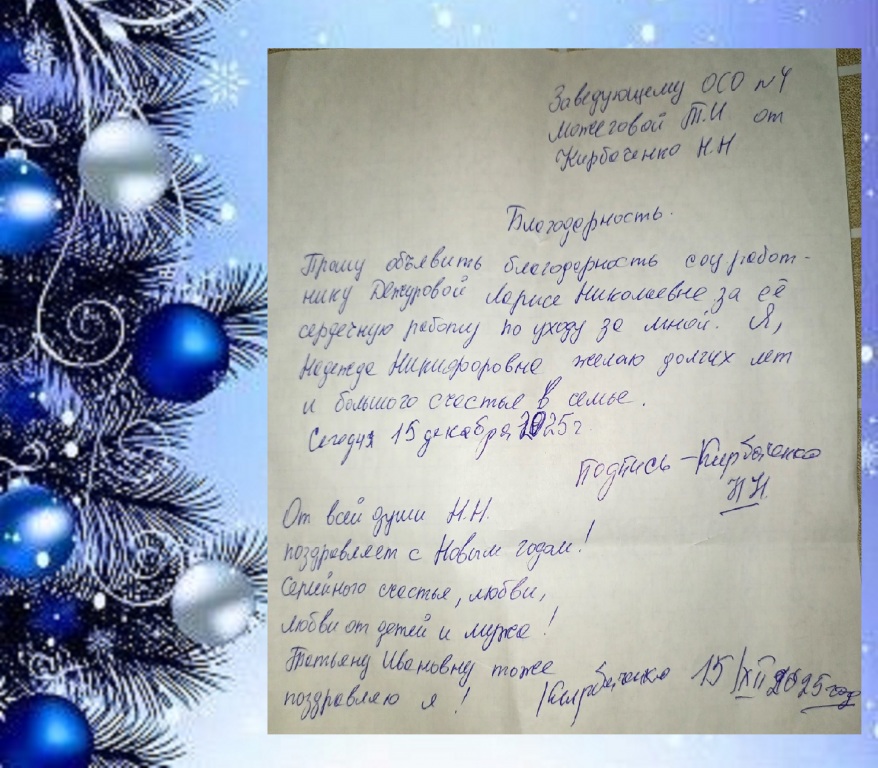 Заведующему ОСО №4
Можеговой Т.И от
Кирбаченко Н.Н
Благодарность.
Прошу объявить благодарность соц работ-
нику Дежуровой Ларисе Николаевне за её
сердечную работу по уходу за мной. Я,
Надежда Никифоровна желаю долгих лет
и большого счастья в семье.
Сегодня 15 декабря 2025 г.
Подпись – Кирбаченко
Н Н.
От всей души Н.Н.
поздравляет с Новым годом!
Семейного счастья, любви,
любви от детей и мужа!
Татьяну Ивановну тоже
поздравляю я!
Кирбаченко 15/XII 2025 год